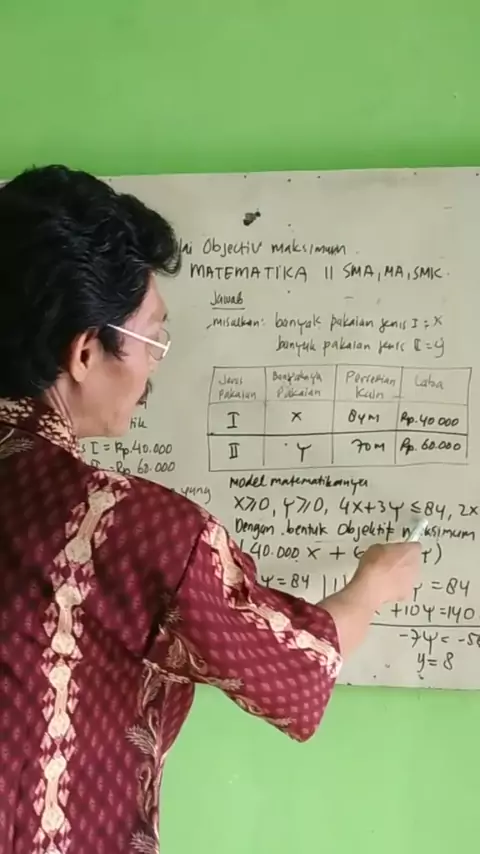 lai Objectiv maksimum
MATEMATIKA 11 SMA, MA, SMK.
Jawab
misalkan: banyak pakaian jenis I = x
banyak pakaian jenis II = y
Jenis Pakaian Banyaknya Pakaian Persedian Kain Laba
I x 84 m Rp. 40 000
II y 70 m Rp. 60.000
I = Rp. 40.000
= Rp 60.000
yang
Model matematikanya
x ≥ 0, y ≥ 0, 4x + 3y ≤ 84, 2x
Dengan bentuk Objektif maksimum
(40.000 x + 6 y)
y = 84 | 1 | y = 84
+ 10y = 140
-7y = -56
y = 8